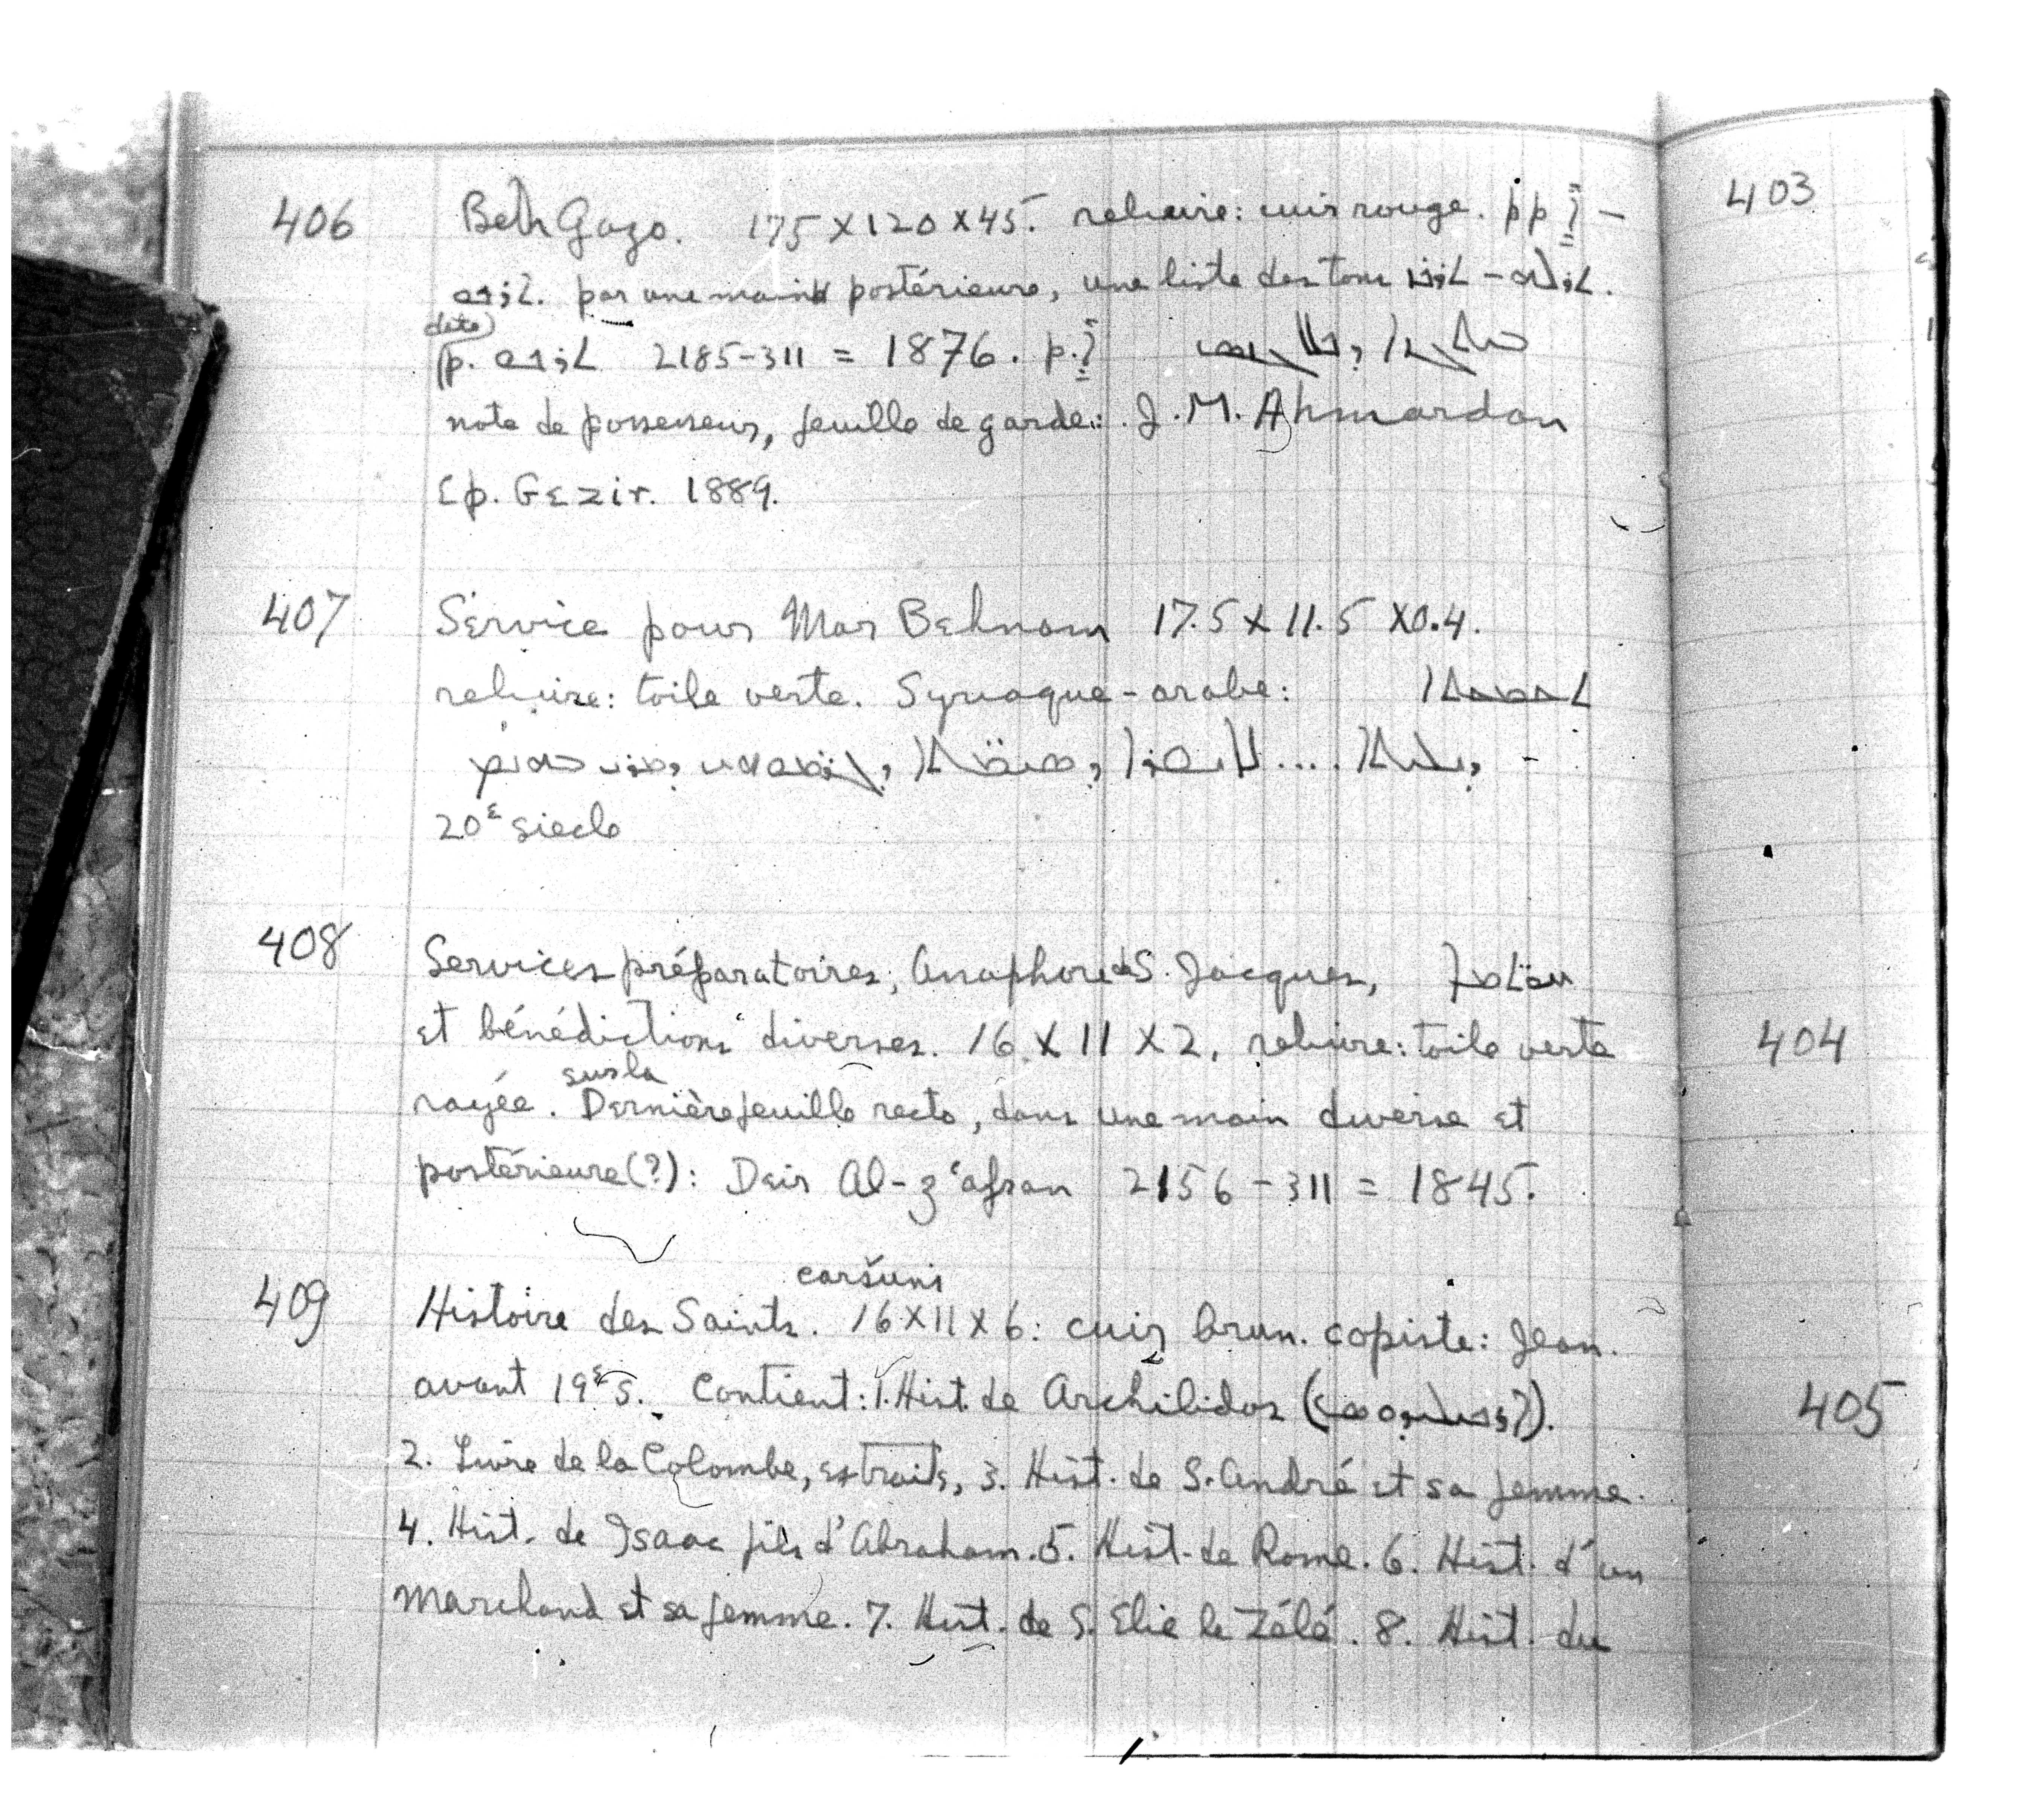 406 Beth Gazo. 175 x 120 x 45. reliure: cuir rouge. pp -
par une main postérieure, une liste des tons
date
p. 2185-311 = 1876. p.
note de possesseur, feuille de garde: J.M. Ahmardan
Ep. Gezir. 1889.
407 Service pour Mar Behnam 17.5 x 11.5 x 0.4.
reliure: toile verte. Syriaque-arabe:
20e siecle
408 Services préparatoires, Anaphore de S. Jacques,
et bénédictions diverses. 16 x 11 x 2. reliure: toile verte
sur la
rayée. Dernière feuille recto, dans une main diverse et
postérieure(?): Deir Al-z'afran 2156-311 = 1845.
caršuni
409 Histoire des Saints. 16 x 11 x 6: cuir brun. copiste: Jean.
avant 19e s. Contient: 1. Hist. de Archilidos
2. Livre de la Colombe, extraits, 3. Hist. de S. André et sa femme.
4. Hist. de Isaac fils d'Abraham. 5. Hist. de Rome. 6. Hist. d'un
Marchand et sa femme. 7. Hist. de S. Elie le Zélé. 8. Hist. du
403
404
405